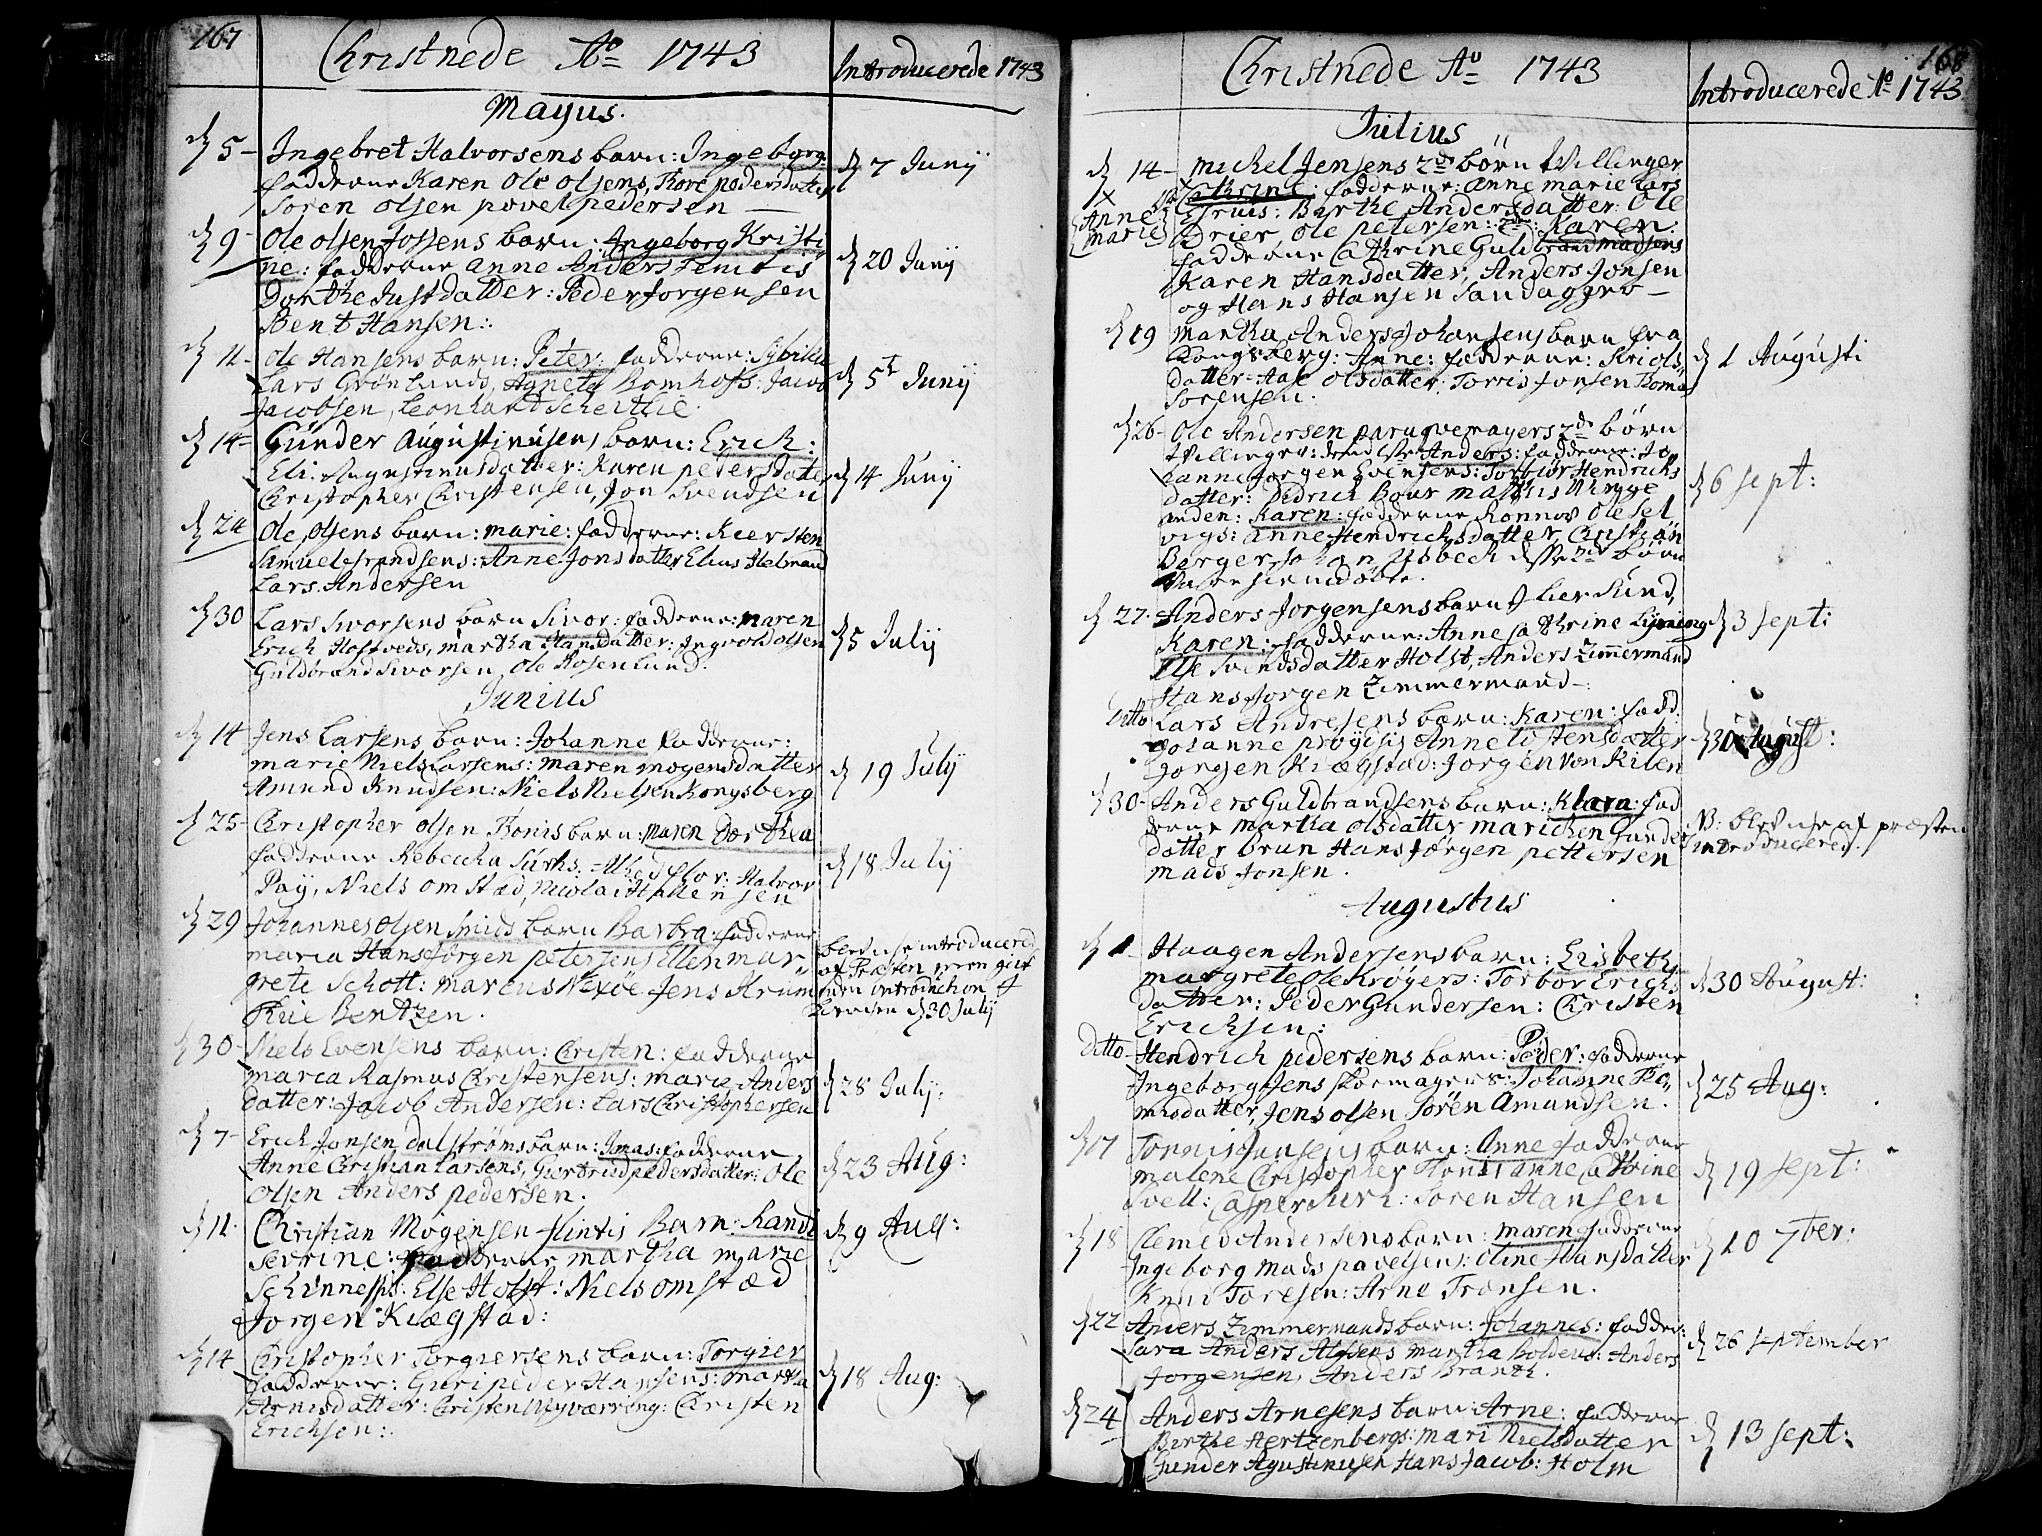 167
Christnede Ao 1743
Introducerede 1743
Mayus.
d 5 - Ingebret Halvorsens barn: Ingeborg:
fadderne Karen Ole Olsens, Tore pedersdatter
Søren Olsen povel pedersen —
d 7 Junij
d 9 - Ole Olsen barn: Ingeborg Kristi
ne: fadderne Anne Anders
Dorthe Justdatter: Peder Jorgensen
Bent Hansen:
d 20 Junij
d 11 - Ole Hansens barn: Peter: fadderne:
Lars Grønlunds, Agnete Bomhofs: Jacob
Jacobsen, Leonhart
d 5t Junij
d 14 - Gunder Augustinusens barn: Erick:
Eli Augustinusdatter: Karen petersdatter
Christopher Christensen, Jon Svendsen
d 14 Junij
d 24 Ole Olsens barn: marie: fadderne: Kiersten
Anne Jonsdatter, Elius Helmand
Lars Andersen
d 30 Lars Sivorsens barn Sivor: fadderne: maren
Erich, martha Hansdatter: Ingvold Olsen
Guldbrand Sivorsen, Ole Rosenlund.
d 5 Julij
Junius
d 14 Jens Larsens barn: Johanne fadderne:
marie Niels Larsens: maren mogensdatter
Amund Knudsen: Niels Nielsen Kongsberg
d 19 Julij
d 25 - Christopher Olsen Tonis barn: maren Dorthea
fadderne Rebeccha Halvor
Pay, Niels omstæd, Nicolai Hallensen
d 18 Julij
d 29 Johannes Olsen Smids barn Barbra: fadderne
maria Hans Jørgen petersens Ellen mar-
grete Schott: marcus Nexøe Jens
Bentzen.
blev icke introducered
af Præsten men
introduction
d 30 Julij
d 30 - Niels Evensens barn: Christen: fadderne
marca Rasmus Christensens: marie Anders
datter: Jacob Andersen: Lars Christophersen
d 28 Julij:
d 7 - Erich Jonsen dalstrøms barn: Jonas: fadderne
Anne Christian Larsens, Giertrud pedersdatter: Ole
Olsen Anders pedersen.
d 23 Aug:
d 11 Christian Mogensen Flintis Barn: Randi
Serrine: fadderne martha marie
Else Holst: Niels omstæd
Jorgen Kiægstad:
d 9 Aug:
d 14 Christopher Torgiersens barn: Torgier
fadderne: Guri peder Hansens: martha
Arnisdatter: Christen Christen
Erichsen:
d 18 Aug:
168
Christnede Ao 1743
Introducerede Ao 1743
Julius
d 14 - michel Jensens 2de børn tvillinger
Cathrine: fadderne: anne marie Lars
Anne marie
Birthe Andersdatter: Ole
Ole petersen: 2de: Karen:
fadderne Cathrine Guldbrand madsens
Karen Hansdatter, Anders Jonsen
og Hans Hansen Sandaggro —
d 19 martha Anders Johansens barn fra
Kongsberg: Anne: fadderne:
datter: Aase Olsdatter: Torris Jonsen Tomas
Sørensen.
d 1 Augusti
d 26 - Ole Andersen paruqvemagers 2de børn
tvillinger: Anders: fadderne: Jo
hanne Jørgen Evensens: Torbiør Hendrichs
datter: Didrich
anden: Karen: fadderne Ronnov Ole Sel
vigs: Anne Hendrichsdatter, Christian
Berger, Johan børn
d 6 sept:
d 27 - Anders Jorgensens barn Lier Sund,
Karen: fadderne: Anne Cathrine
Else Svendsdatter Holst, Anders Zimmermand
Hans Jorgen Zimmermand —
d 3 sept:
Ditto Lars Andresens barn: Karen: fadd:
Johanne Anne
Jorgen Kiægstad: Jorgen Von Kilen
d 30 August:
d 30 - Anders Guldbrandsens barn: Klara: fad
derne martha Olsdatter marichen Gunders
datter brun Hans Jørgen pettersen
mads Jonsen.
NB: blev icke af præsten
introducered.
Augustus
d 1 - Haagen Andersens barn: Lisbeth
margrete Ole Krøyers: Torbor Erichs
datter: Peder Gundersen: Christen
Erichsen:
d 30 August:
Ditto - Hendrich pedersens barn: Peder: fadderne
Ingeborg Jens skomagers: Johanne To-
masdatter, Jens Olsen Søren Amundsen.
d 25 Aug:
d 17 Tonnis Jansens barn: Anne fadderne
malene Christopher Tonis anne Cathrine
Svell: Casper Søren Hansen
d 19 sept:
d 18 Clemed Andersens barn: maren: fadderne
Ingeborg mads pavelsens: Oline Hansdatter
Knud Toresen: Arne Tronsen.
d 10 7ber:
d 22 Anders Zimmermands barn: Johannes: fadder:
Sara Anders martha Boldens: Anders
Jorgensen, Anders Branth.
d 26 september
d 24 Anders Arnesens barn: Arne: fadderne
Birthe Hertzenbergs: mari Nielsdatter
Gunder Agustinusen Hans Jacob: Holm
d 13 sept: